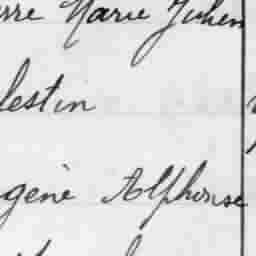 rre Marie Julien
lestin
gène Alphonse